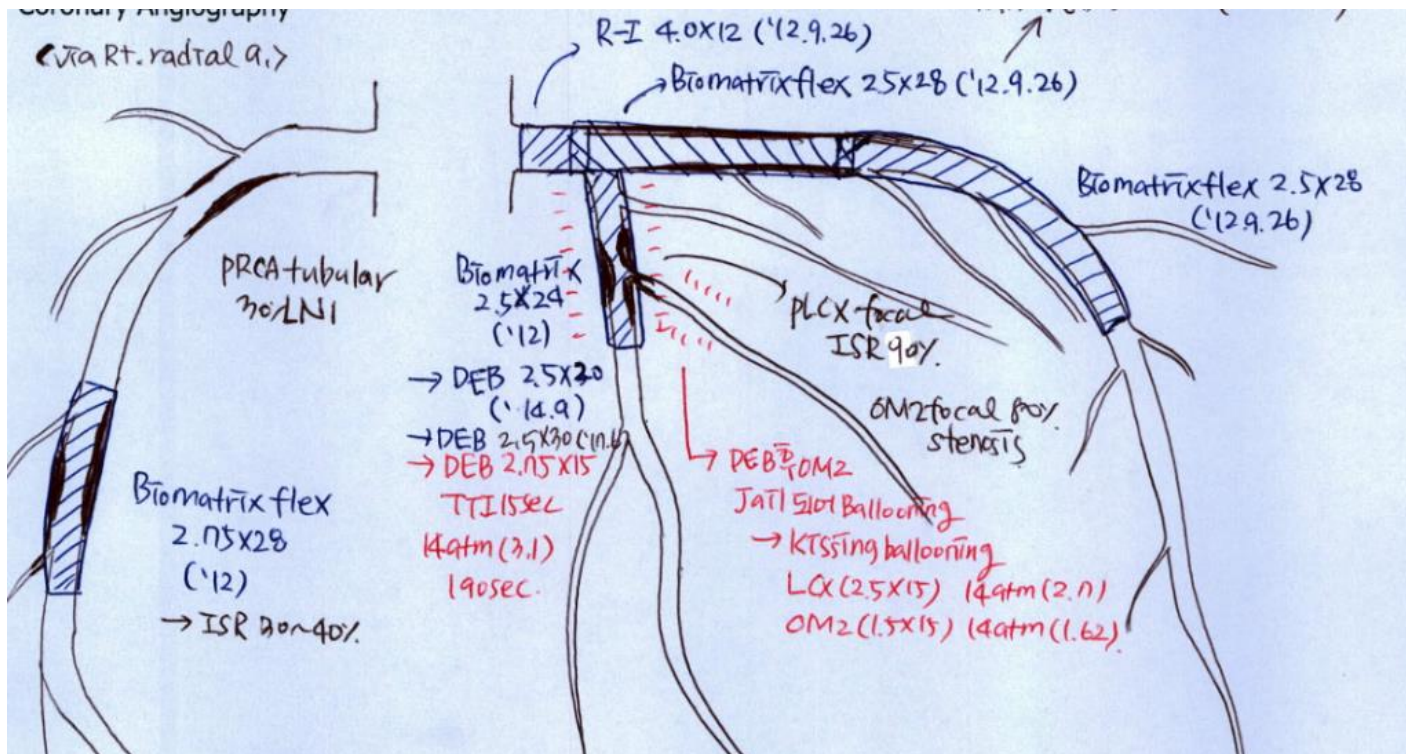 Coronary Angiography
<via Rt. radial a.>
R-I 4.0X12 ('12.9.26)
Biomatrix flex 2.5X28 ('12.9.26)
Biomatrix flex 2.5X28
('12.9.26)
pRCA tubular
30% LN1
Biomatrix
2.5X24
('12)
→ DEB 2.5X20
('14.9)
→ DEB 2.5X30
→ DEB 2.75X15
TTI 15sec
14atm (3.1)
190sec.
pLCX focal
ISR 90%.
OM2 focal 80%.
stenosis
→ DEB 후 OM2
Jail slot Ballooning
→ Kissing ballooning
LCX (2.5X15) 14atm (2.7)
OM2 (1.5X15) 14atm (1.62)
Biomatrix flex
2.75X28
('12)
→ ISR 30~40%.